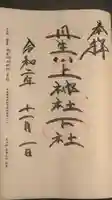 奉拝
丹生川上神社下社
令和二年十一月一日